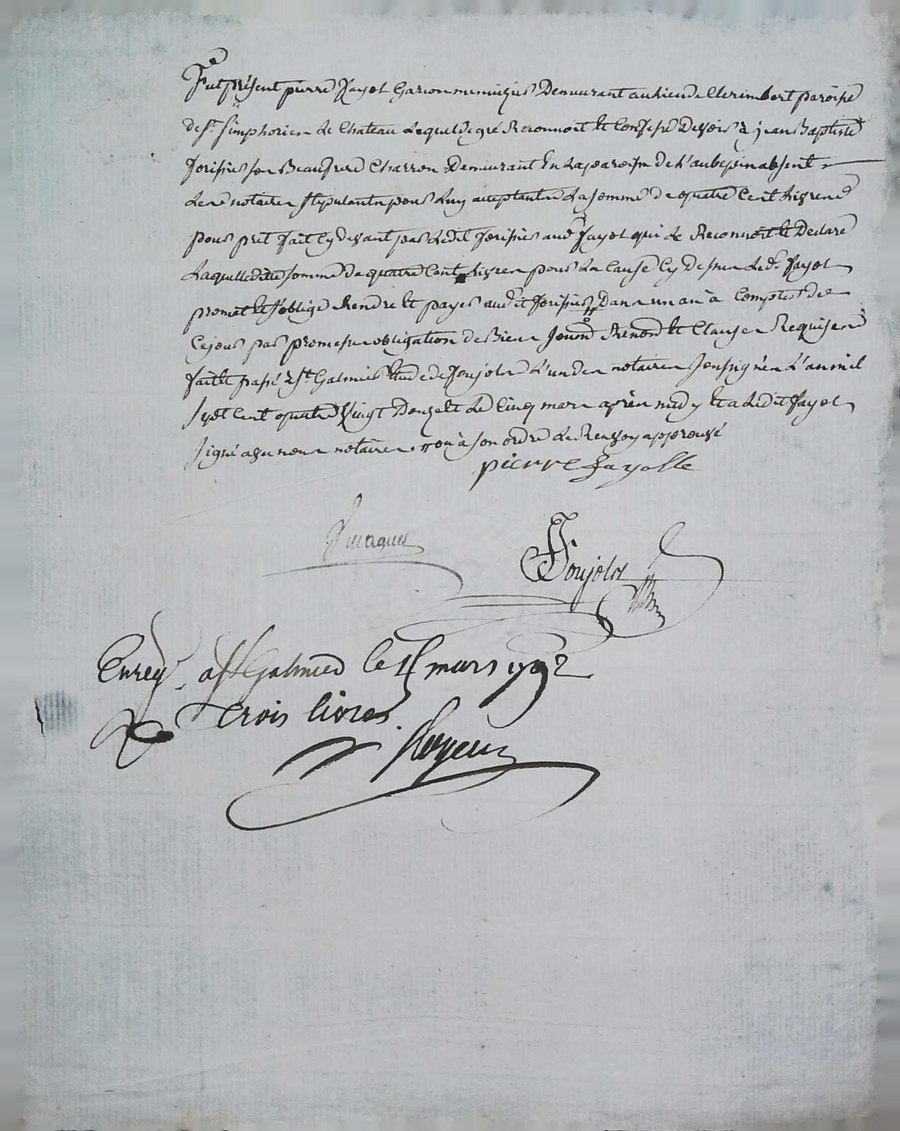 Fut présent pierre Fayol Garcon menuizier Demeurant au lieu de Clerimbert paroisse
de St. Simphorien Le Chateau Lequel de gré Reconnoit Et Confesse Devoir à jean Baptiste
son Beaufrere Charron Demeurant En La paroisse de L'aubepin absent
Le né notaire stipulant pour Luy acceptant La somme de quatre Cent Livres
pour prêt fait Cy devant par Ledit aud. Fayol qui Le Reconnoit Et Declare
Laquelle ditte somme de quatre Cent Livres pour La Cause Cy dessus Led. Fayol
promet Et s'oblige Rendre Et payer audit Dans un an à Compter de
Cejour par promesse obligation de Bien Renond. Et Clauses Requises
fait Et passé à St. Galmier Etude de Joujolx L'un des notaires soussignés L'an mil
sept Cent quatre Vingt Douze Et Le Cinq mars après midy Et a Ledit Fayol
signé avec nous notaires ou à son ordre Le Renvoy approuvé
pierre fayolle
Joujolx
Enreg. à St Galmier le mars 1792
trois livres